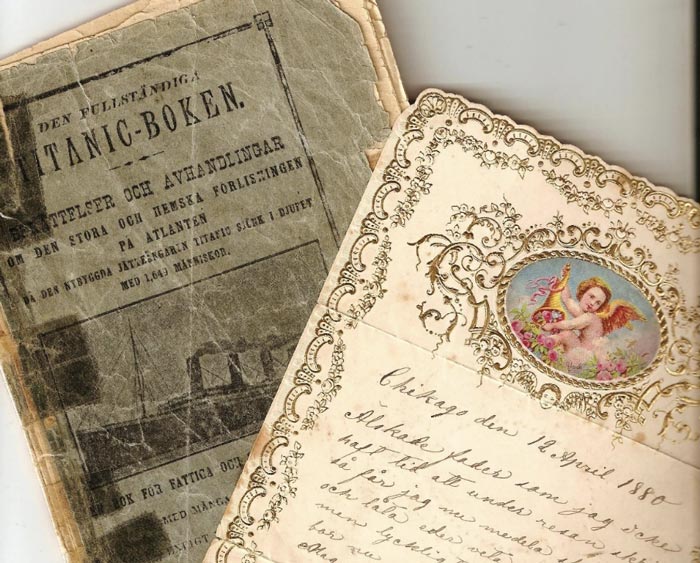 DEN FULLSTÄNDIGA
TITANIC-BOKEN.
BERÄTTELSER OCH AVHANDLINGAR
OM DEN STORA OCH HEMSKA FÖRLISNINGEN
PÅ ATLANTEN
DÅ DEN NYBYGGDA JÄTTEÅNGAREN TITANIC SJÖNK I DJUPET
MED 1,643 MÄNNISKOR.
EN BOK FÖR FATTIGA OCH
MED MÅNGA
Chikago den 12 April 1880
Älskade fader som jag icke
haft til att under resan skri
så får jag nu meddela
och låta eder veta
men lycklig
hor nu